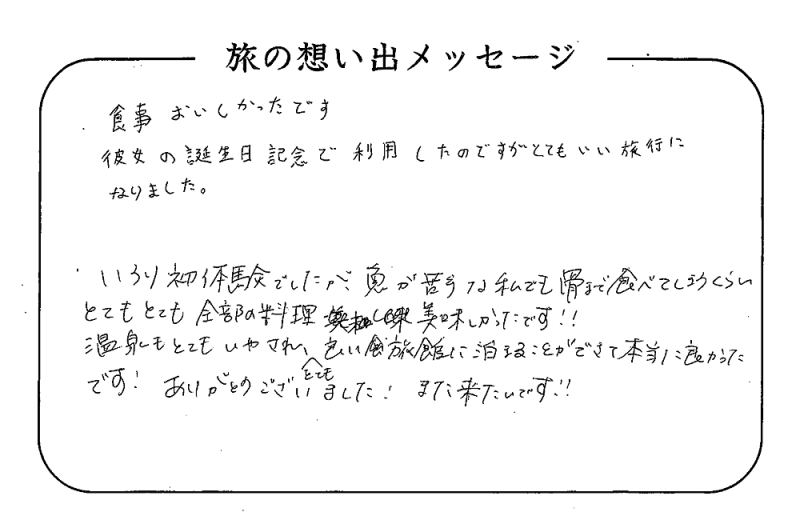 旅の想い出メッセージ
・食事 おいしかったです
彼女の誕生日記念で利用したのですがとてもいい旅行に
なりました。
・いろり初体験でしたが、魚が苦手な私でも骨まで食べてしまうくらい
とてもとても全部の料理 美味しかったです!!
温泉もとてもいやされ、良い旅館に泊まることができて本当に良かった
です! ありがとうございました! また来たいです!!
とても